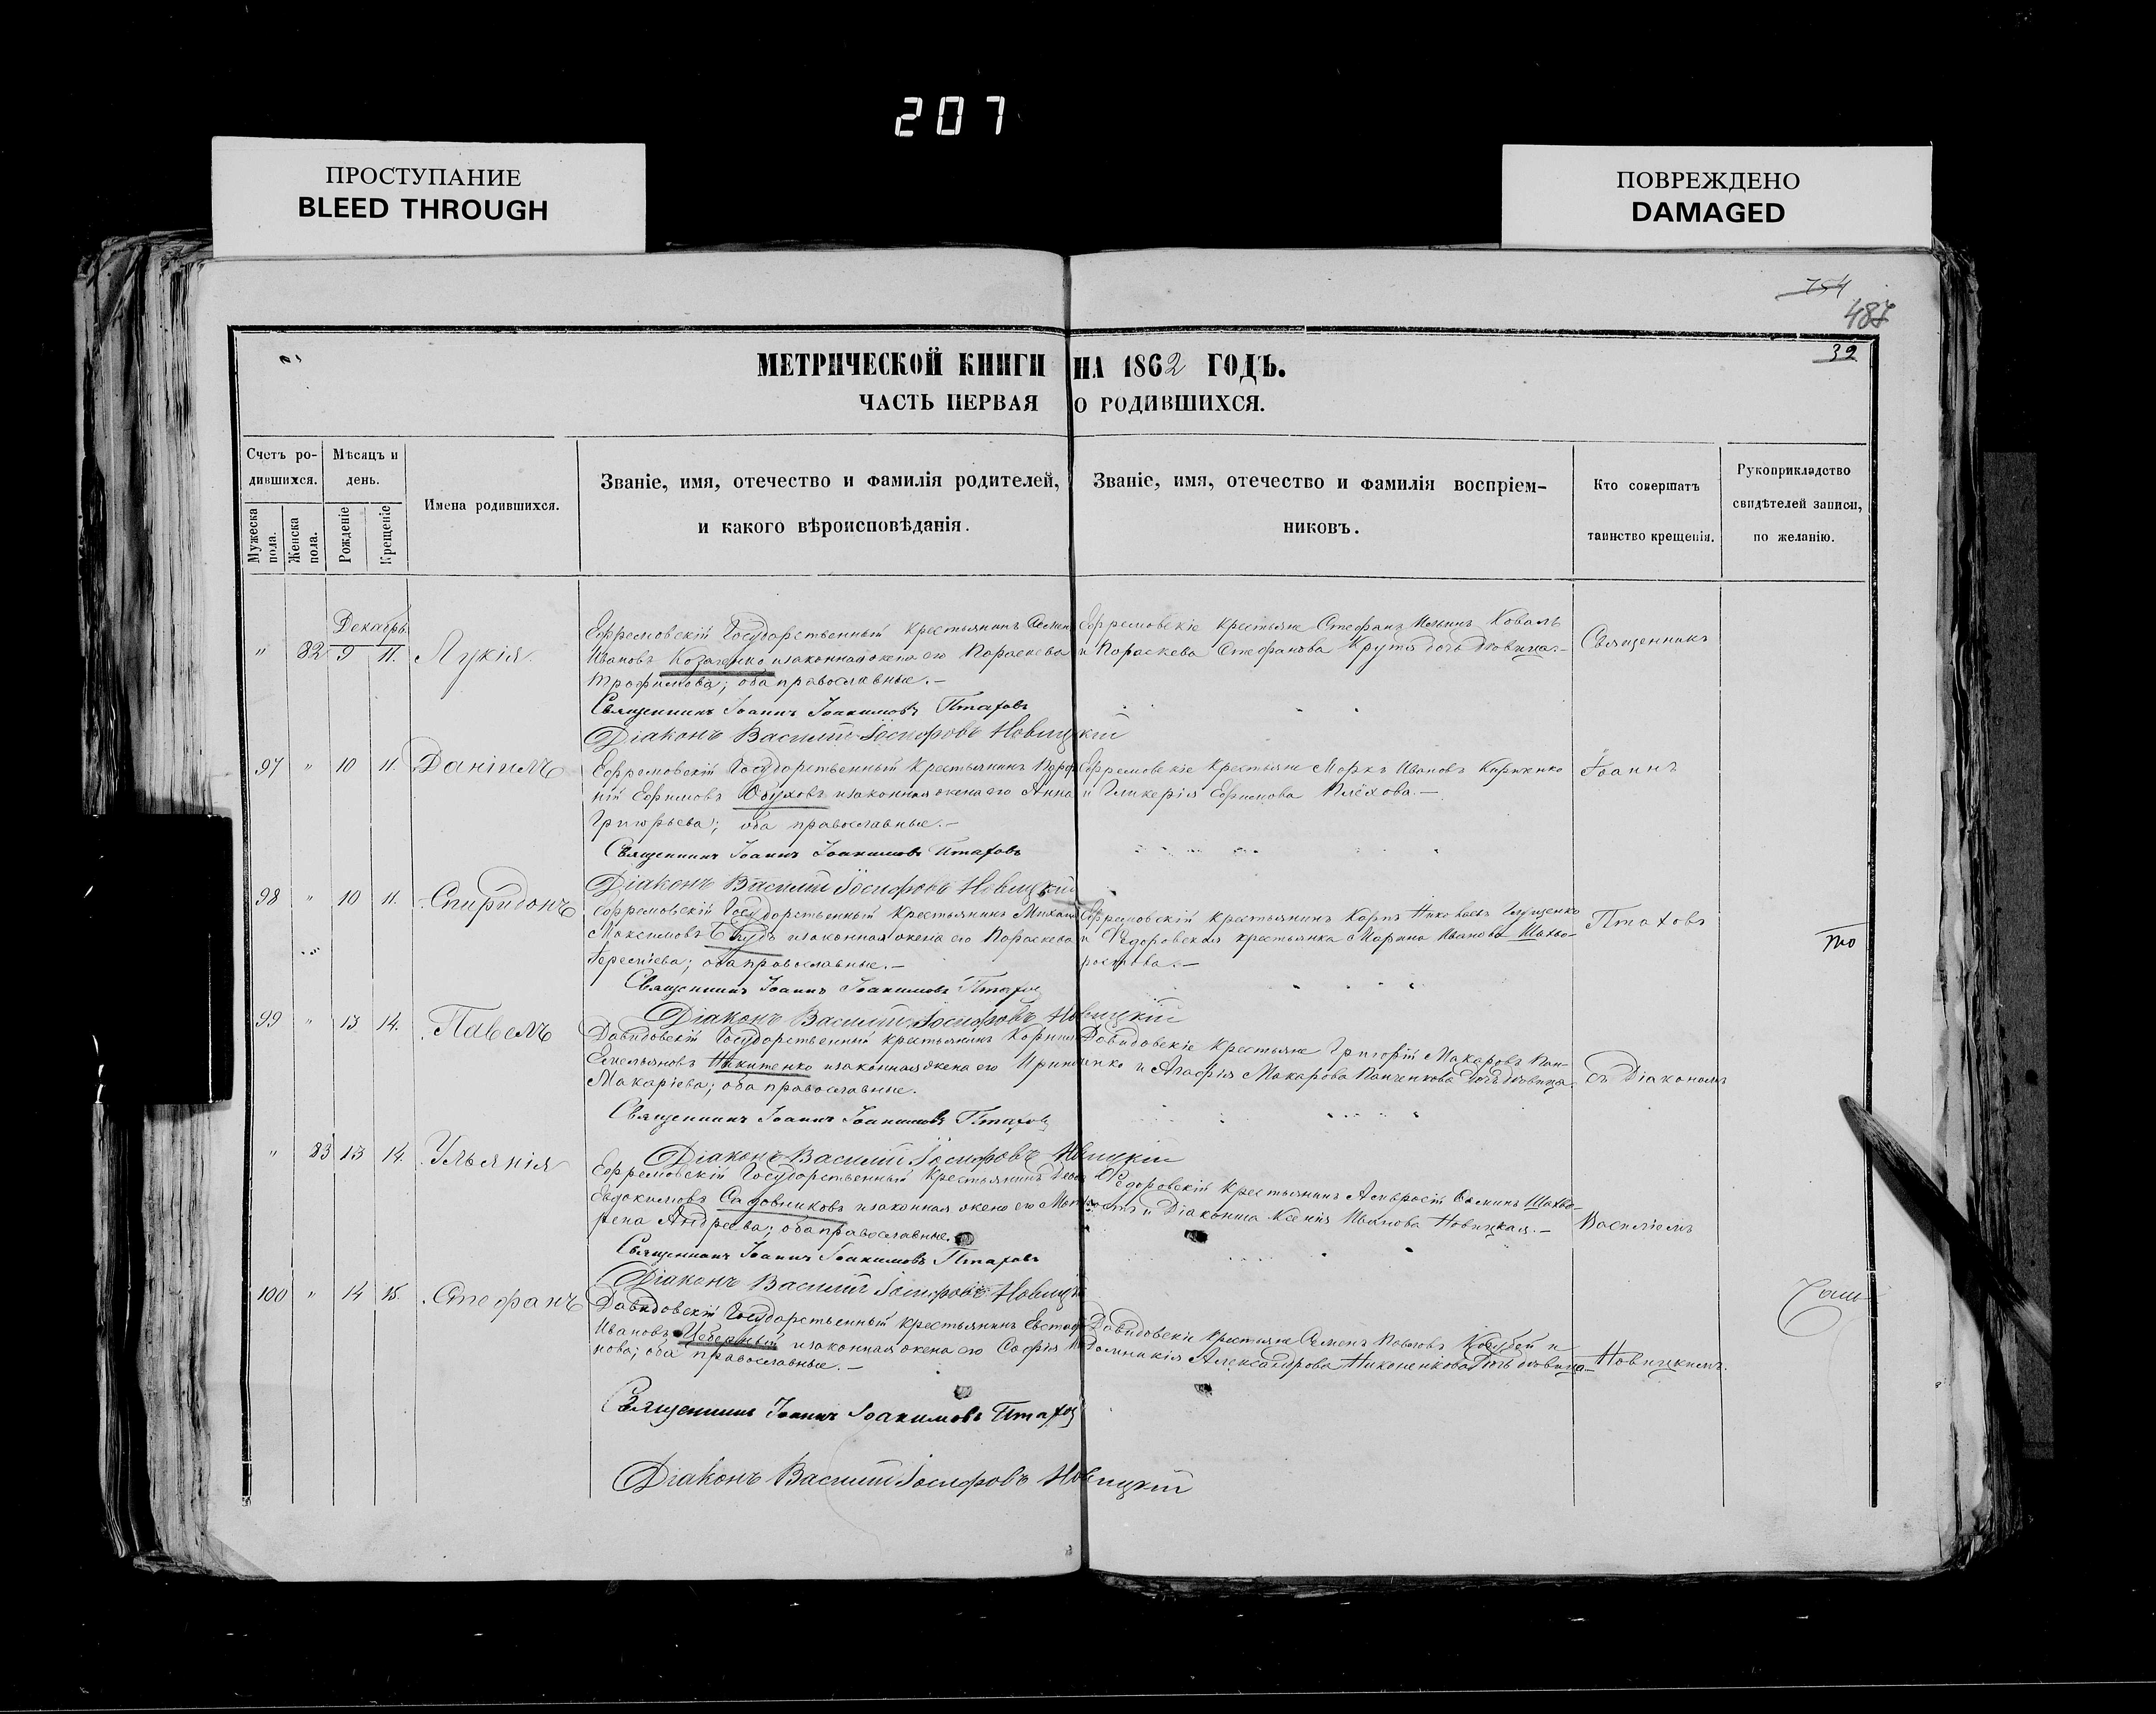 207
ПРОСТУПАНИЕ
BLEED THROUGH
ПОВРЕЖДЕНО
DAMAGED
754
487
39
МЕТРИЧЕСКОЙ КНИГИ НА 1862 ГОДЪ.
ЧАСТЬ ПЕРВАЯ О РОДИВШИХСЯ.
Счетъ ро-
дившихся.
Мужеска пола.
Женска пола.
Мѣсяцъ и
день.
Рожденіе
Крещеніе
Имена родившихся.
Званіе, имя, отечество и фамилія родителей,
и какого вѣроисповѣданія.
Званіе, имя, отечество и фамилія воспріем-
никовъ.
Кто совершатъ
таинство крещенія.
Рукоприкладство
свидѣтелей записи,
по желанію.
Декабрь
" 82 9 11. Лукія
Ефремовскій Государственный крестьянинъ Семенъ
Ивановъ Козаченко и законная жена его Параскева
Трофимова; оба православные.—
Ефремовскіе крестьяне Стефанъ Ильинъ Коваль
и Параскева Стефанова Крутя дочь девица—
Священникъ
Священникъ Іоаннъ Іоакимовъ Птаховъ
Діаконъ Василій Іосифовъ Новицкій
97 " 10 11. Даніилъ
Ефремовскій Государственный крестьянинъ
ній Ефимовъ Обуховъ и законная жена его Анна
Григорьева; оба православные.—
Ефремовскіе крестьяне Марко Ивановъ Кириченко
и Гликерія Ефимова Плехова.—
Іоаннъ
Священникъ Іоаннъ Іоакимовъ Птаховъ
Діаконъ Василій Іосифовъ Новицкій
98 " 10 11. Спиридонъ
Ефремовскій Государственный крестьянинъ Михаилъ
Максимовъ и законная жена его Параскева
оба православные.—
Ефремовскій крестьянинъ Карпъ Николаевъ Грищенко
и Федоровская крестьянка Марина Иванова Шахво-
ростова.—
Птаховъ
то
Священникъ Іоаннъ Іоакимовъ Птаховъ
Діаконъ Василій Іосифовъ Новицкій
99 " 13 14. Павелъ
Давидовскій Государственный крестьянинъ Корнилій
Емельяновъ Никитенко и законная жена его Ирина
Макаріева; оба православные.
Давидовскіе крестьяне Григорій Макаровъ Пан-
ченко и Агафія Макарова Панченкова дочь девица
съ Діакономъ
Священникъ Іоаннъ Іоакимовъ Птаховъ
Діаконъ Василій Іосифовъ Новицкій
" 83 13 14. Ульянія
Ефремовскій Государственный крестьянинъ
Евдокимовъ Садовниковъ и законная жена его Мат
рена Андреева; оба православные.
Федоровскій крестьянинъ Амвросій Шахво-
ростъ и Діаконша Ксенія Иванова Новицкая.—
Василіемъ
Священникъ Іоаннъ Іоакимовъ Птаховъ
Діаконъ Василій Іосифовъ Новицкій
100 " 14 15. Стефанъ
Давидовскій Государственный крестьянинъ
Ивановъ и законная жена его Софія
нова; оба православные.—
Давидовскіе крестьяне Семенъ Павловъ Кочубей и
Домникія Александрова Никоненкова дочь девица—
Новицкимъ.
Священникъ Іоаннъ Іоакимовъ Птаховъ
Діаконъ Василій Іосифовъ Новицкій